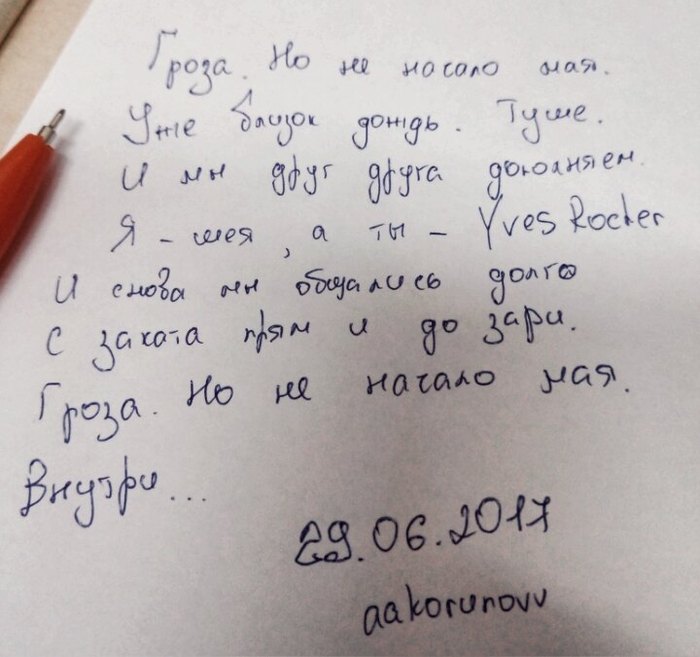 Гроза. Но не начало мая.
Уже близок дождь. Туше.
И мы друг друга дополняем.
Я - шея, а ты - Yves Rocher
И снова мы общались долго
С заката прям и до зари.
Гроза. Но не начало мая.
Внутри...
29.06.2017
aakorunovv